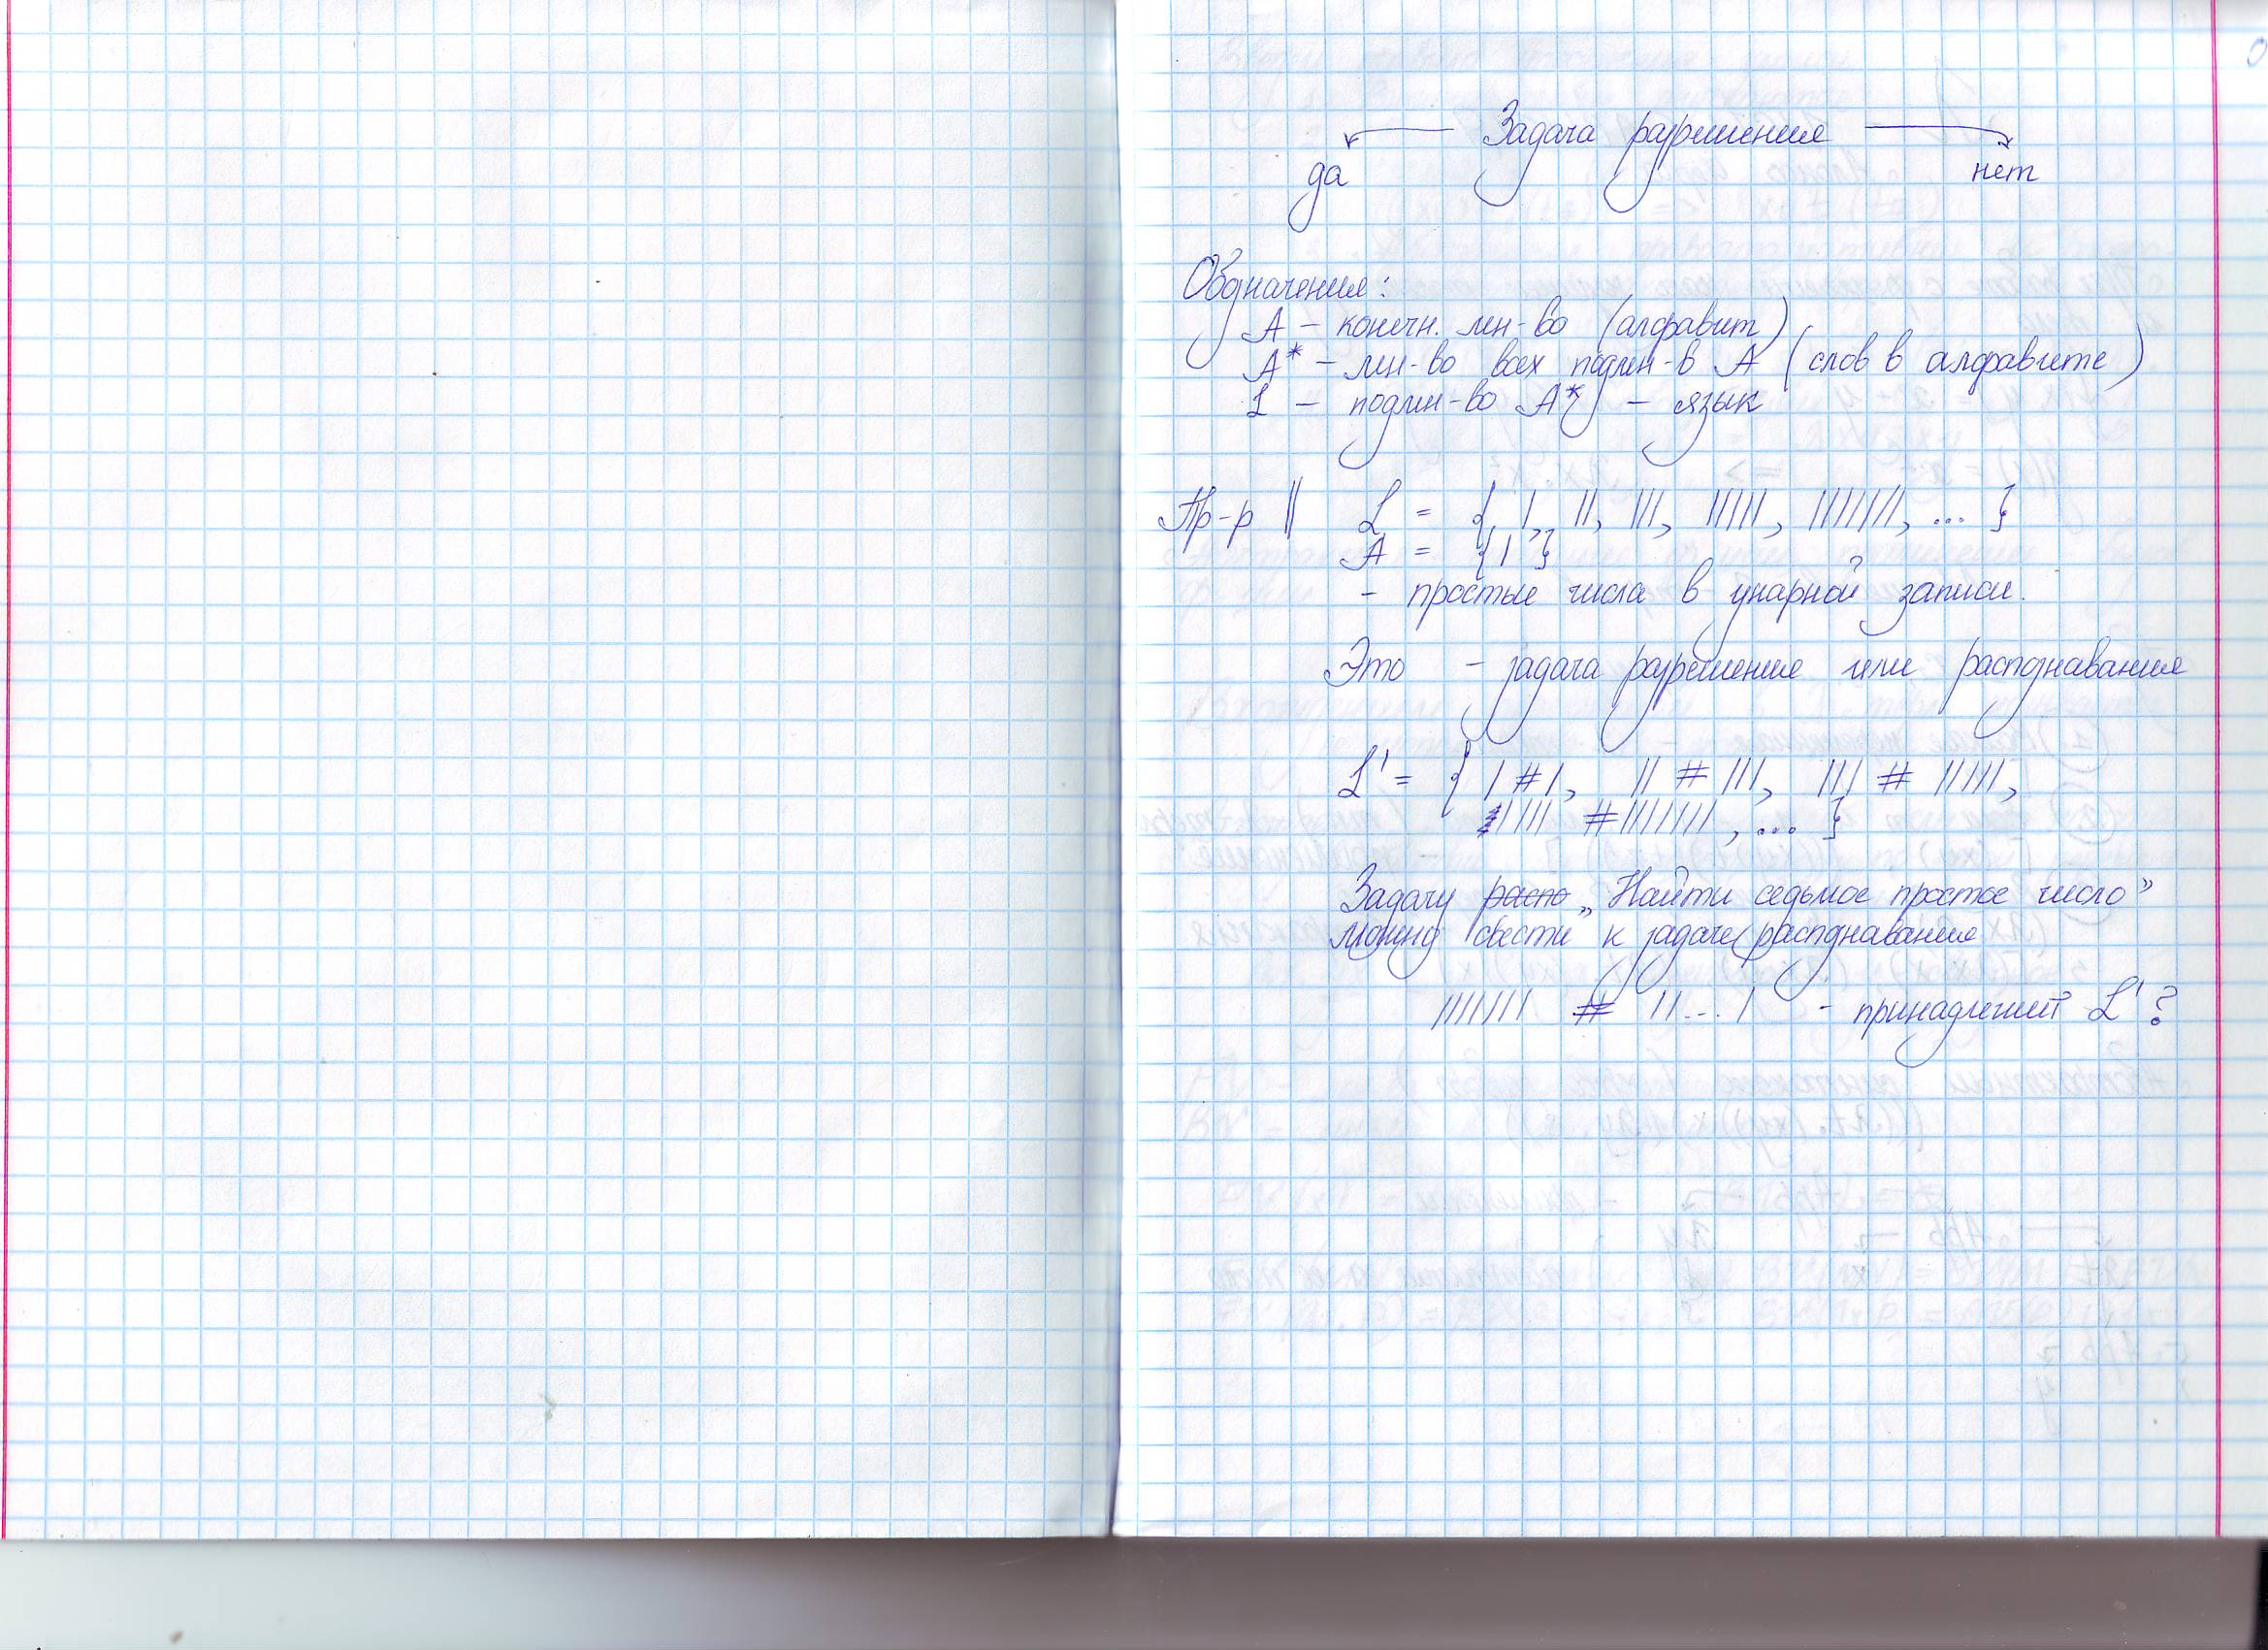 Задача разрешения
да нет
Обозначения:
А – конечн. мн-во (алфавит)
А* – мн-во всех подмн-в А (слов в алфавите)
L – подмн-во А* – язык
Пр-р || L = { |, ||, |||, |||||, |||||||, ... }
A = { | }
- простые числа в унарной записи.
Это - задача разрешения или распознавания
L' = { | # |, || # |||, ||| # |||||,
|||| # |||||||, ... }
Задачу распо „Найти седьмое простое число”
можно свести к задаче распознавания
||||||| # ||...| - принадлежит L' ?